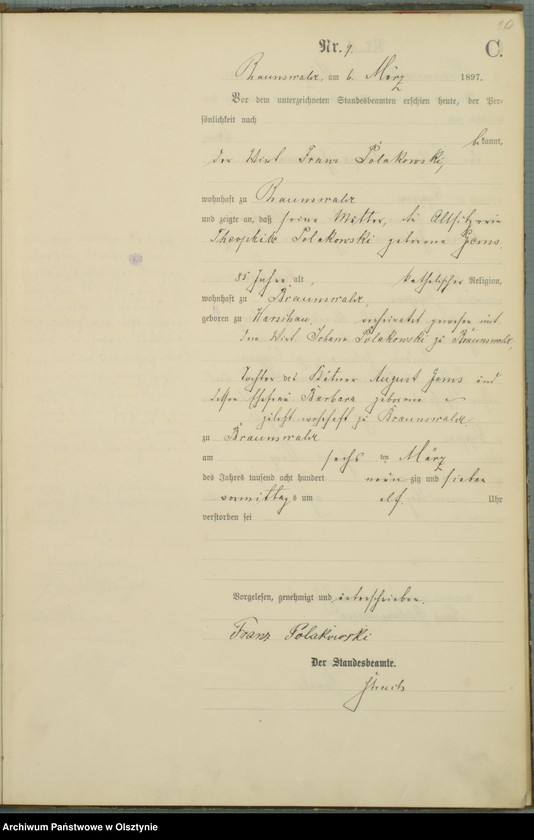 10
Nr. 9.
C.
Braunswalde, am 6. März 1897.
Vor dem unterzeichneten Standesbeamten erschien heute, der Per-
sönlichkeit nach
bekannt,
der Wirt Franz Polakowski,
wohnhaft zu Braunswalde
und zeigte an, daß seine Mutter, die Altsitzerin
Theophila Polakowski geborene Jems,
85 Jahre alt, katholischer Religion,
wohnhaft zu Braunswalde,
geboren zu verheiratet gewesen mit
dem Wirt Johann Polakowski zu Braunswalde,
Tochter des Kätner August Jems und
dessen Ehefrau Barbara geborene
zuletzt wohnhaft zu Braunswalde
zu Braunswalde
am sechs ten März
des Jahres tausend acht hundert neun zig und sieben
vormittags um elf Uhr
verstorben sei
Vorgelesen, genehmigt und unterschrieben.
Franz Polakowski
Der Standesbeamte.
Archiwum Państwowe w Olsztynie